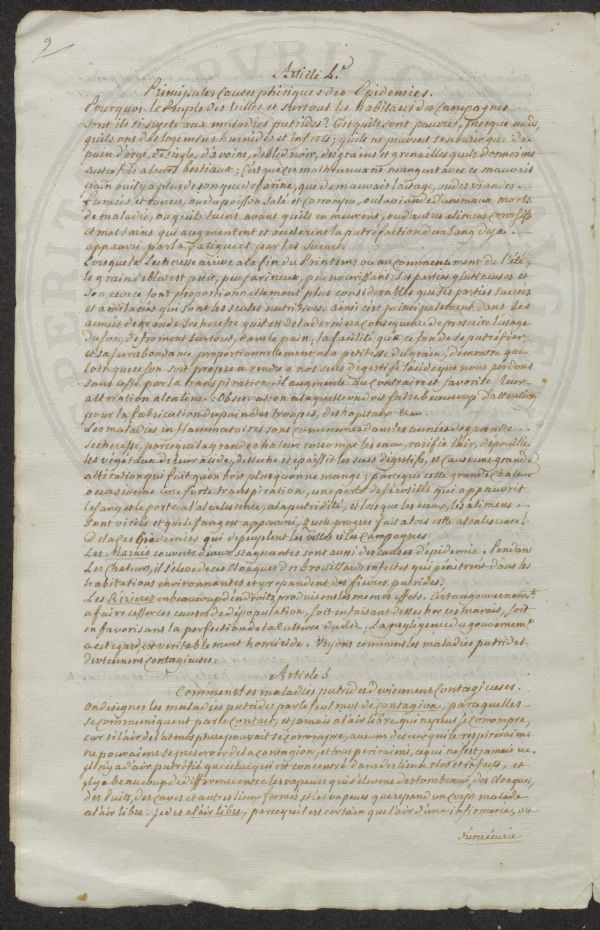 9
Article 4.e
Principales Causes phisiques des Epidemies.
Pourquoi le Peuple des Villes et surtout les habitans des Campagnes
sont ils si sujets aux maladies putrides? C'est qu'ils sont pauvres, presque nuds,
qu'ils ont des logemens humides et infects; qu'ils ne peuvent se nourrir que de
pain d'orge, de seigle, d'avoine, de bled noir, des grains et grenailles qu'ils donnoient
autrefois a leurs bestiaux; c'est que ces malheureux ne mangent avec ce mauvais
pain ou il y a plus de son que de farine, que de mauvais laitage, ou des viandes
fumées et rances, ou du poisson salé et corrompu, ou la viande d'animaux morts
de maladie, ou qu'ils tuent avant qu'ils en meurent, ou d'autres alimens corrosifs
et mal sains qui augmentent et accelerent la putrefaction d'un sang deja
appauvri par la fatigue et par les sueurs.
Lorsque la secheresse arrive a la fin du Printems ou au commencement de l'été,
le grain de bled est petit, peu farineux, peu nourrissant; ses parties glutineuses et
son ecorce sont proportionnellement plus considerables que ses parties sucrées
et amilacées qui sont les seules nutritives. ainsi c'est principalement dans les
années de grande secheresse qu'il est de la derniere consequence de proscrire l'usage
du son, de froment surtout, dans le pain; la facilité qu'a ce son de se putrefier,
et sa surabondance proportionnellement a la petitesse du grain, demontre que
loin que ce son soit propre a rendre a nos sucs digestifs l'acide que nous perdons
sans cesse par la transpiration, il augmente au contraire et favorise leur
alteration alcaline: Observation a laquelle on doit faire beaucoup d'attention
pour la fabrication du pain des troupes, des hopitaux &a.
Les maladies inflammatoires sont communes dans les années de grande
secheresse, parceque la grande chaleur corrompt les eaux, rarefie l'air, depouille
les végétaux de leur acide, desseche et epaissit les sucs digestifs, et cause une grande
alteration qui fait qu'on boit plus qu'on ne mange; parceque cette grande chaleur
occasionne une forte transpiration, une perte de serosités qui appauvrit
le sang et le porte a l'alcalescence, a la putridité, et lorsque les eaux, les alimens
sont viciés et que le sang est appauvri, quels progrès fait alors cette alcalescence!
De la ces Epidemies qui depeuplent les villes et les Campagnes
Les Marais couverts d'eaux stagnantes sont aussi des causes d'epidemie. Pendant
les Chaleurs, il s'eleve de ces Cloaques des brouillards infectes qui penetrent dans les
habitations environnantes et y repandent des fievres putrides.
Les Rizieres en beaucoup d'endroits produisent les memes effets. C'est au gouvernemt.
a faire cesser ces causes de depopulation, soit en faisant dessecher ces marais, soit
en favorisant la perfection de la culture du riz. La negligence du gouvernemt.
a cet egard est veritablement homicide. Voyons comment les maladies putrides
deviennent contagieuses.
Article 5
Comment les maladies putrides deviennent Contagieuses.
On designe les maladies putrides par le seul mot de contagion, parce qu'elles
se communiquent par le contact, et jamais a l'air libre qui ne peut se corrompre,
car si l'air de l'atmosphere pouvoit se corrompre, aucun de ceux qui le respireroient
ne pourroient se preserver de la contagion, et tous periroient, ce qui ne s'est jamais vu.
Il n'y a d'air putrefié que celui qui est concentré dans des lieux clos et infects, et
il y a beaucoup de difference entre les vapeurs qui s'elevent des tombeaux, des cloaques,
des Puits, des caves et autres lieux fermés, et les vapeurs que repand un corps malade
a l'air libre. Je dis a l'air libre, parcequ'il est certain que l'air d'une infirmerie, ou
d'une ecurie